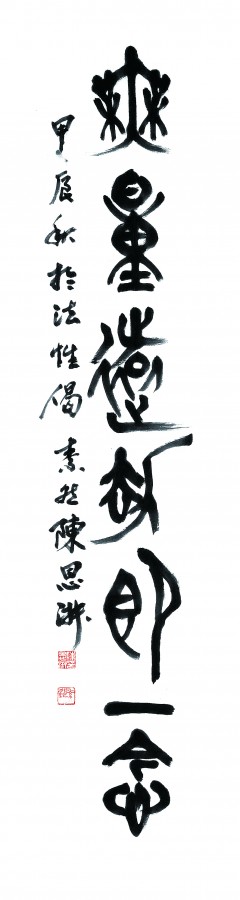 無量遠劫即一念
甲辰秋於法性偈 素然陳